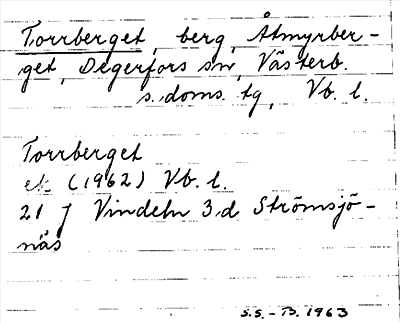 Torrberget, berg, Åtmyrber-
get, Degerfors sn, Västerb.
s. doms. tg, Vb. l.
Torrberget
ek (1962) Vb. l.
21 J Vindeln 3d Strömsjö-
näs
S.S. - B. 1963